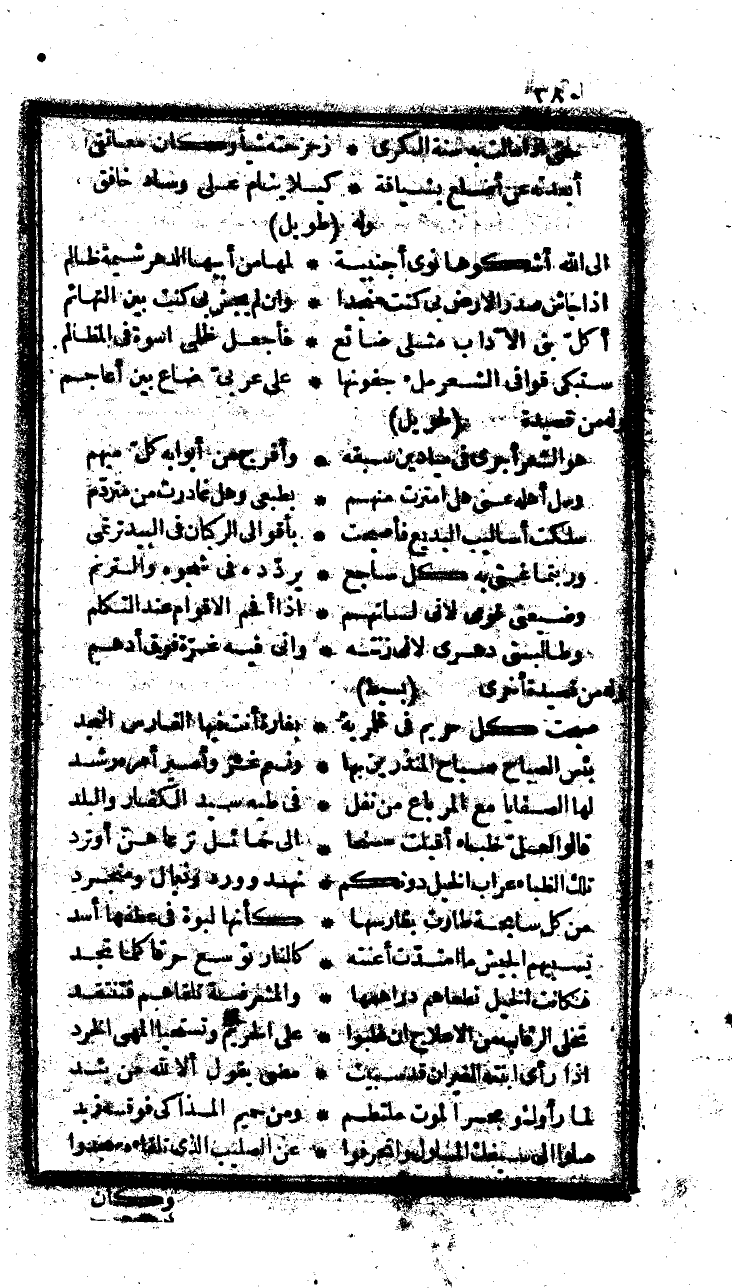 ٣٨٠
حتى اذا مالت به سنة الكرى * زحزحته شيأ وكان معانقى
أبعدته عن أضلع تشتاقه * كيلا ينام على وساد خافق
وله (طويل)
الى الله أشكوها نوى أجنبية * لها من أبيها الدهر شيمة ظالم
اذا جاش صدر الارض بى كنت منجدا * وان لم يجش بى كنت بين التهائم
أكل بنى الآداب مثلى ضائع * فأجعل ظلمى اسوة فى المظالم
ستبكى قوافى الشعر ملء جفونها * على عربى ضاع بين أعاجم
وله من قصيدة (طويل)
هو الشعر أجرى فى ميادين سبقه * وأفرج من أبوابه كل مبهم
وسل أهله عنى هل امتزت منهم * بطبعى وهل غادرت من متردم
سلكت أساليب البديع فأصبحت * بأقوالى الركبان فى البيد ترتمى
وربما غنى به كل ساجع * يردده فى شجوه والترنم
وضيعنى قومى لانى لسانهم * اذا أفحم الاقوام عند التكلم
وطالبنى دهرى لانى زنته * وانى فيه غرة فوق أدهم
وله من قصيدة أخرى (بسيط)
صبحت كل حريم فى * بغارة أنت فيها الفارس النجد
بئس الصباح صباح المنذرين بها * وغم وأمير أمره رشد
لها الصفايا مع المرباع من نفل * فى طيه سبد الكفار واللبد
قالوا ظباء أقبلت * الى أو ترد
تلك الظباء عراب الخيل دونكم * نهد وورد
من كل سابحة طارت بفارسها * كأنها لبوة فى عطفها أسد
يسيبهم الجيش ما امتدت أعنته * كالنار توسع حرقا كلما تجد
فكانت الخيل تطغاهم دراهمها * والمشرفية تلقاهم فتنتقد
تخلى الرقاب من الاعلاج ان طلبوا * على الحريم وتستحيا المهى الخرد
اذا رأى ابنته قد سبيت * مضى يقول ألا لله من يئد
لما رأوك و بحر الموت ملتطم * ومن حميم المذاكى فوقه زبد
صلوا الى سيفك المسلول وانحرفوا * عن الصليب الذى تلقاءه سجدوا
وكان